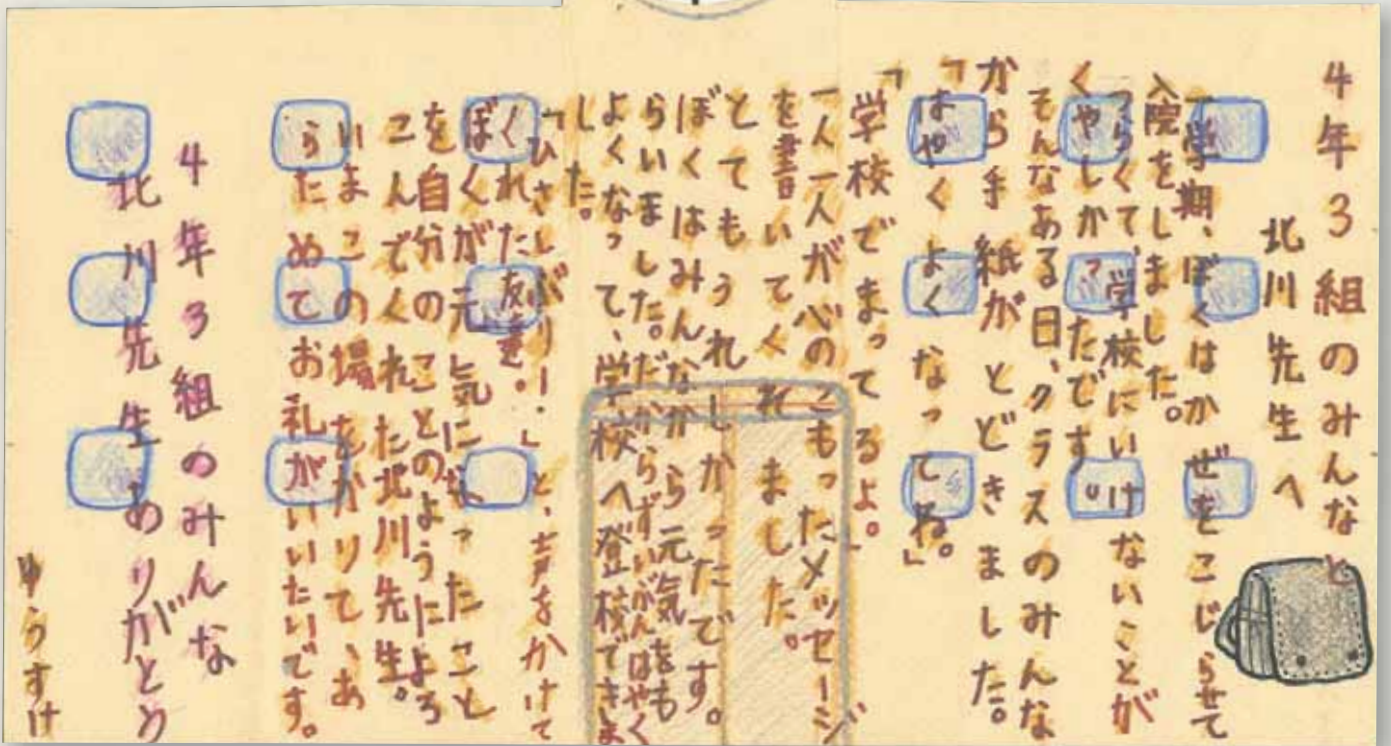 4年3組のみんなと
北川先生へ
一学期、ぼくはかぜをこじらせて
入院をしました。
つらくて、学校にいけないことが
くやしかったです。
そんなある日、クラスのみんな
から手紙がとどきました。
「はやくよくなってね。」
「学校でまってるよ。」
一人一人が心のこもったメッセージ
を書いてくれました。
とてもうれしかったです。
ぼくはみんなから元気をも
らいました。だからずいぶんはやく
よくなって、学校へ登校できま
した。
「ひさしぶりー。」と、声をかけて
くれた友達。
ぼくが元気になったこと
を自分のことのようによろ
こんでくれた北川先生。
いまこの場をかりて、あ
らためてお礼がいいたいです。
4年3組のみんな
北川先生ありがとう
ゆうすけ